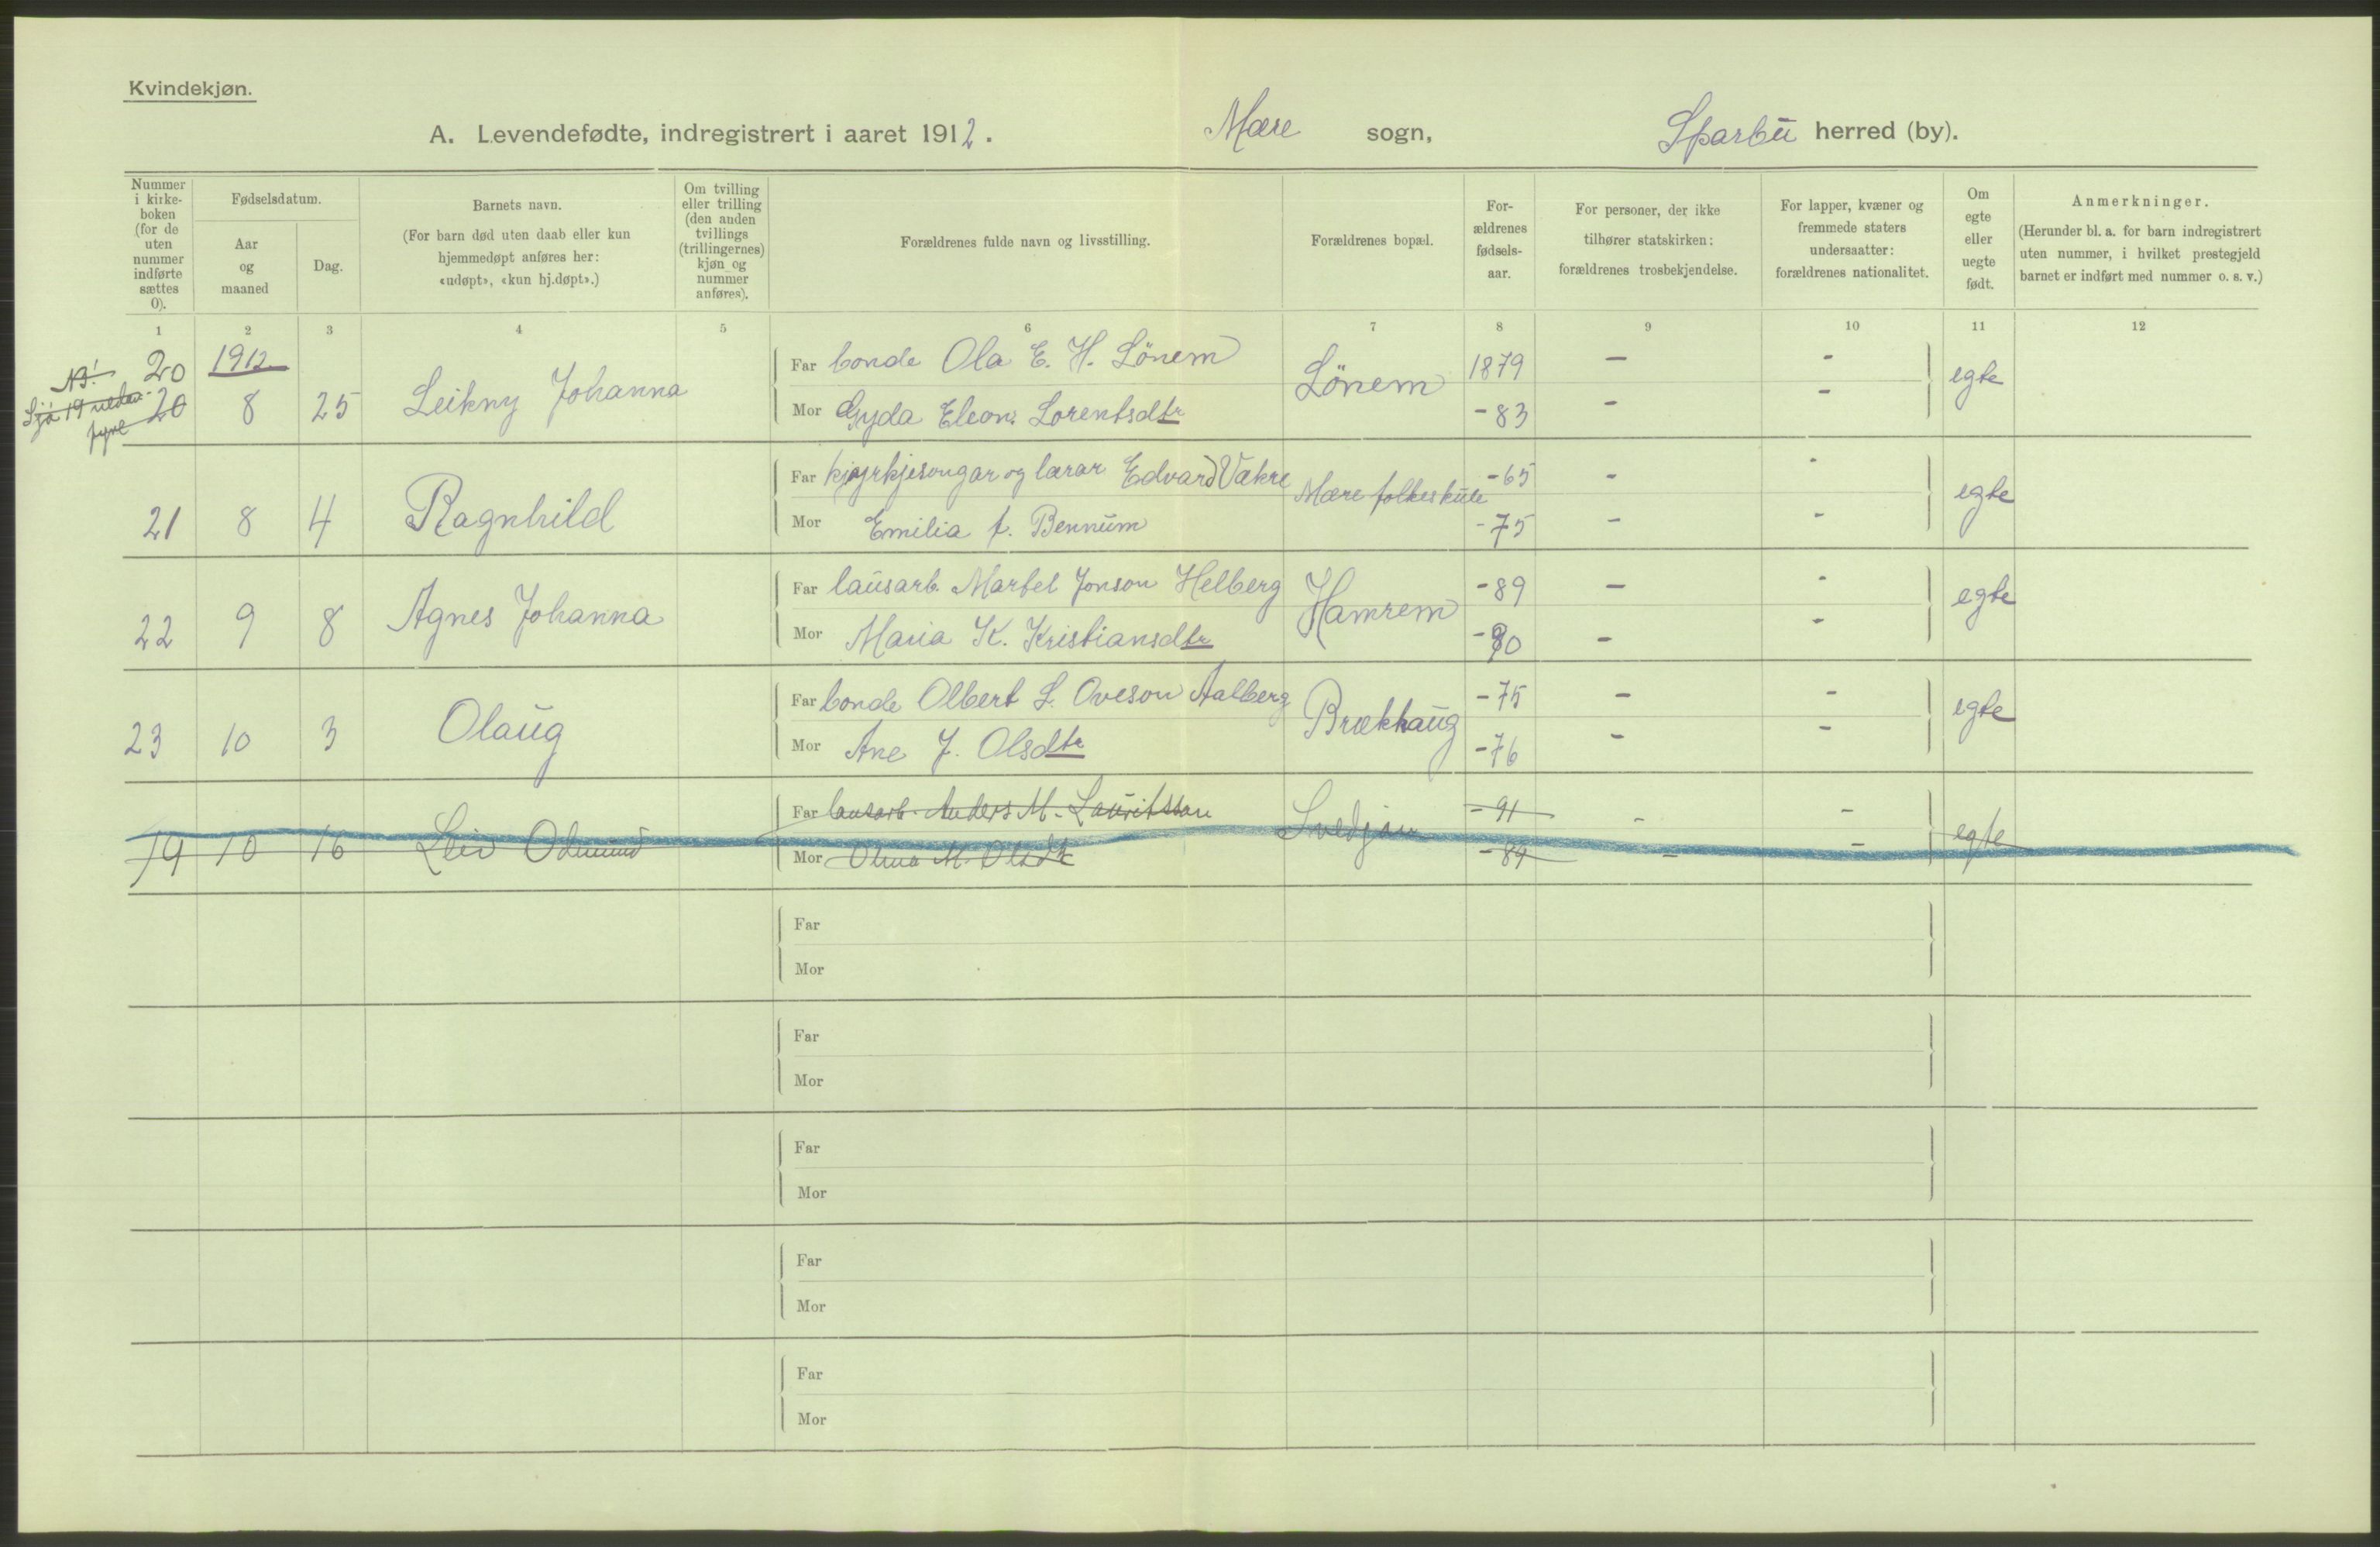 Kvindekjøn.
A. Levendefødte, indregistrert i aaret 1912. Mære sogn, Sparbu herred (by).
Nummer i kirke-boken (for de uten nummer indførte sættes 0).
Fødselsdatum.
Aar og maaned
Dag.
Barnets navn.
(For barn død uten daab eller kun hjemmedøpt anføres her: «udøpt», «kun hj.døpt».)
Om tvilling eller trilling (den anden tvillings (trillingernes) kjøn og nummer anføres).
Forældrenes fulde navn og livsstilling.
Forældrenes bopæl.
For-ældrenes fødsels-aar.
For personer, der ikke tilhører statskirken: forældrenes trosbekjendelse.
For lapper, kvæner og fremmede staters undersaatter: forældrenes nationalitet.
Om egte eller uegte født.
Anmerkninger.
(Herunder bl. a. for barn indregistrert uten nummer, i hvilket prestegjeld barnet er indført med nummer o. s. v.)
1 2 3 4 5 6 7 8 9 10 11 12
NB!
Sjå 19 nedan-
fyre
20 1912 Far bonde Ola E. H. Lönem Lönem 1879 - - egte
20 8 25 Leikny Johanna Mor Gyda Eleon. Lorentsdtr -83 - -
Far kyrkjesongar og lærar Edvard Vakre Mære folkeskule -65 - - egte
21 8 4 Ragnhild Mor Emilia f. Bennum -75 - -
Far lausarb. Martel Jonson Helberg Hamrem -89 - - egte
22 9 8 Agnes Johanna Mor Maria K. Kristiansdtr -90 - -
Far bonde Olbert L. Oveson Aalberg Brækhaug -75 - - egte
23 10 3 Olaug Mor Ane J. Olsdtr -76 - -
Far lausarb. Anders M. Lauritsson Svedjan -91 - - egte
19 10 16 Leiv Odmund Mor Olina M. Olsdtr -89 - -
Far
Mor
Far
Mor
Far
Mor
Far
Mor
Far
Mor